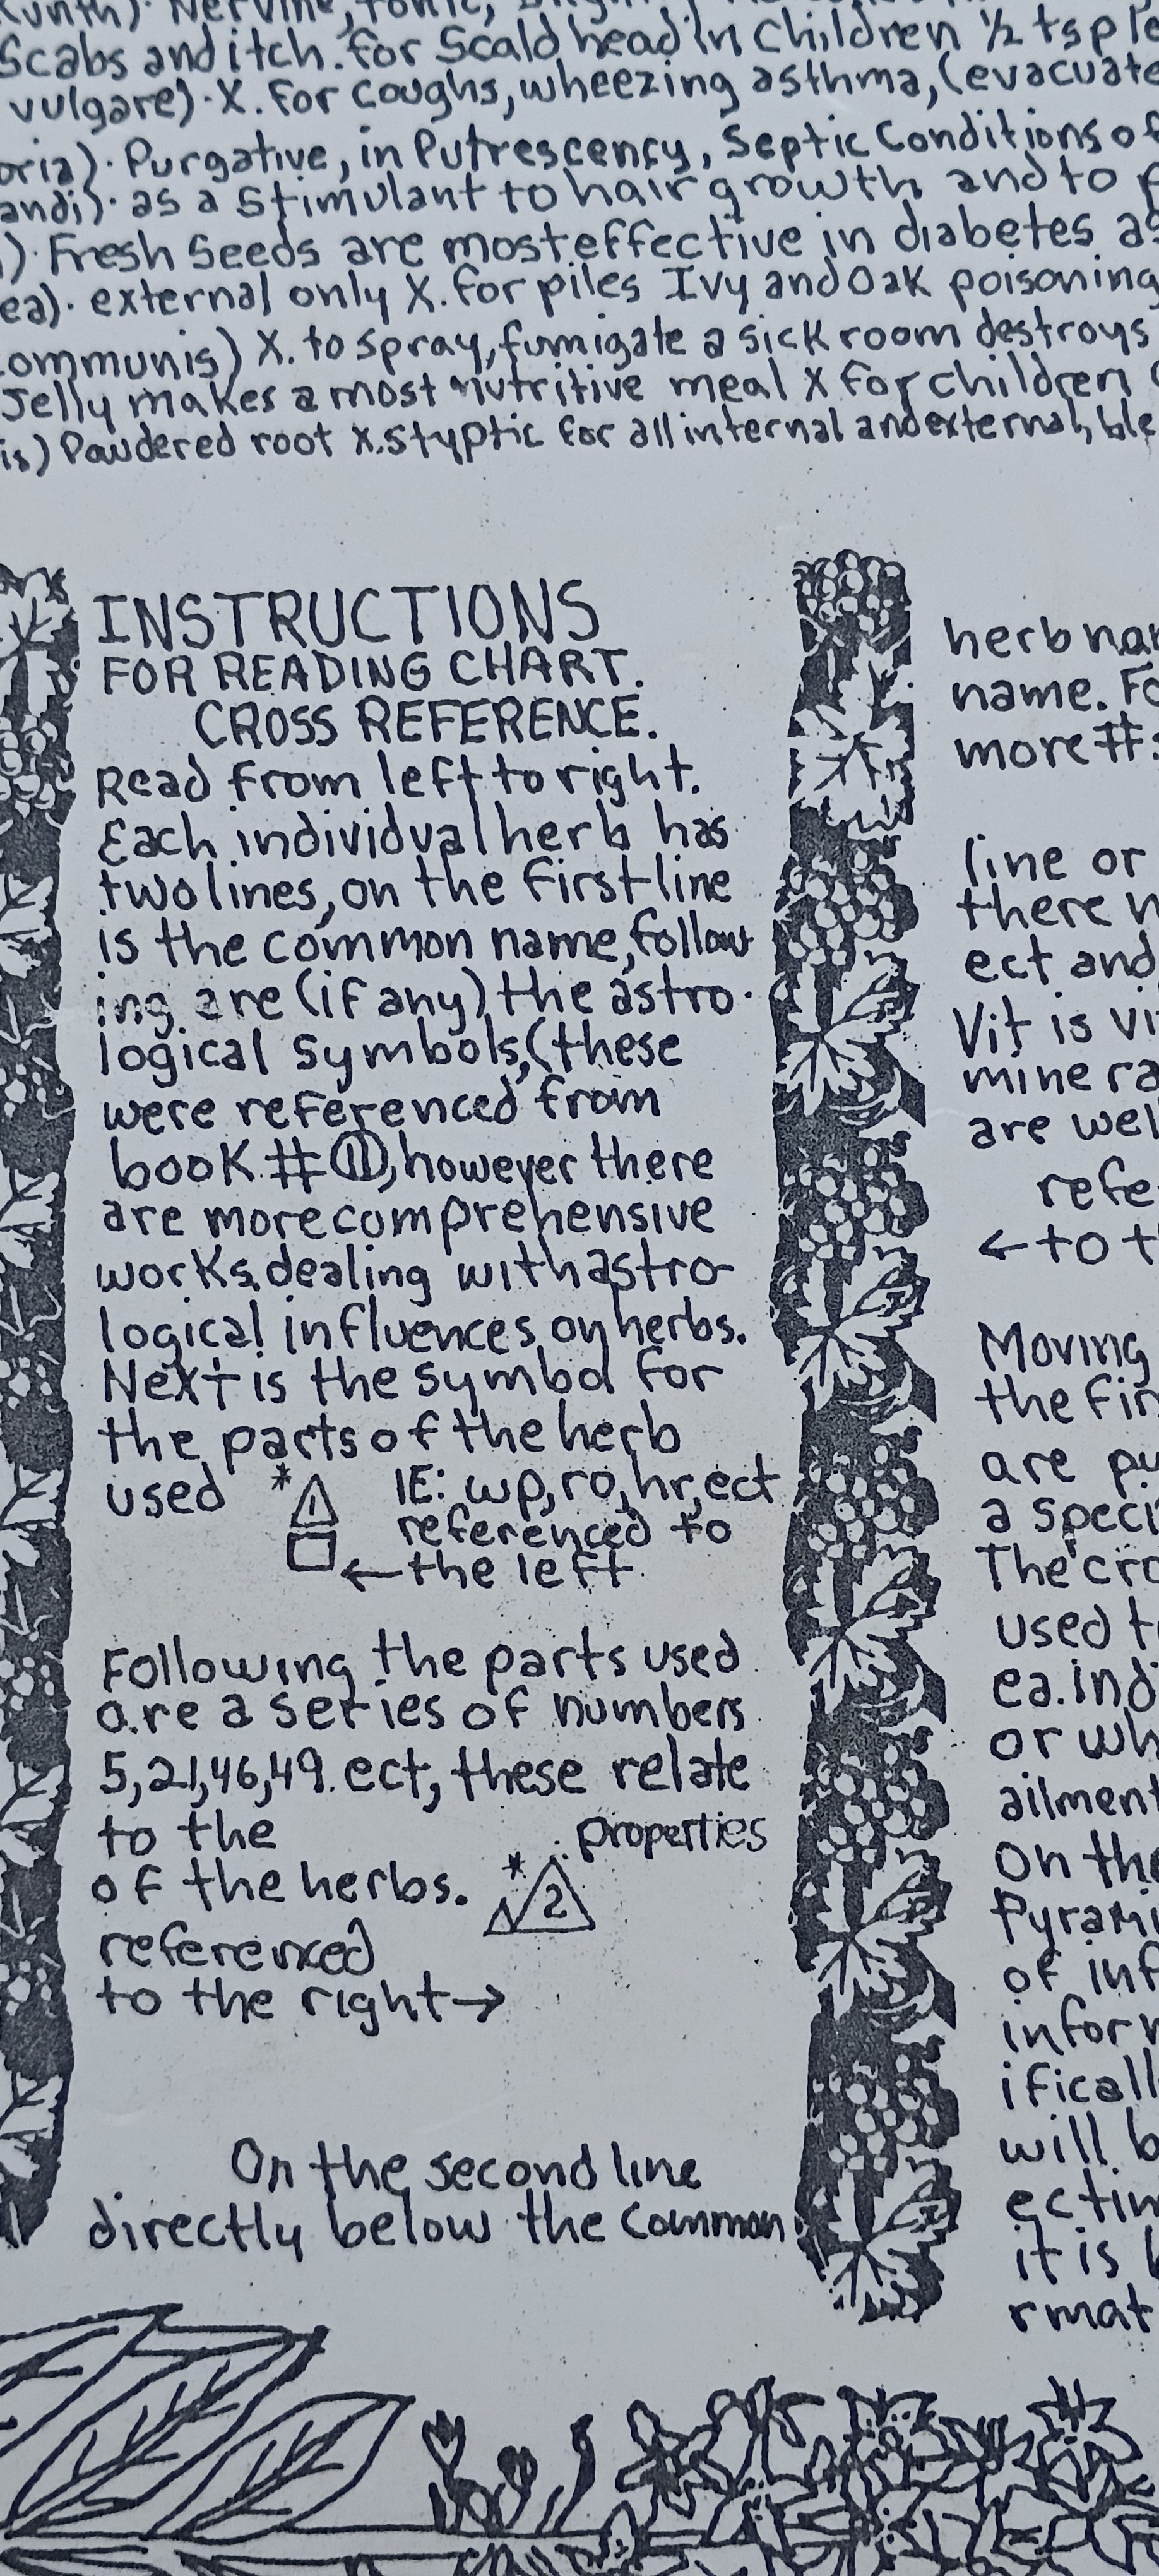 Kunth). Nervine, Tonic,
Scabs and itch. for Scald head in Children 1/2 tsp
vulgare). X. for coughs, wheezing asthma, (evacuate
oria). Purgative, in Putrescency, Septic Conditions of
andi). as a Stimulant to hair growth and to
). Fresh Seeds are most effective in diabetes as
ea). external only X. for piles Ivy and Oak poisoning
ommunis) X. to spray, fumigate a sick room destroys
Jelly makes a most nutritive meal X for children
is) Powdered root X. Styptic for all internal and external, ble
INSTRUCTIONS
FOR READING CHART.
CROSS REFERENCE.
Read from left to right.
Each individual herb has
two lines, on the first line
is the common name, follow
ing are (if any) the astro-
logical symbols, (these
were referenced from
book # 11), however there
are more comprehensive
works dealing with astro-
logical influences on herbs.
Next is the symbol for
the parts of the herb
used * 1 IE: wp, ro, hr, ect
referenced to
← the left
Following the parts used
are a series of numbers
5,21,46,49. ect, these relate
to the properties
of the herbs. * 2
referenced
to the right →
On the second line
directly below the Common
herb nam
name. Fo
more #s
line or
there
ect and
Vit is vi
minera
are well
refe
← to t
Moving
the fir
are pu
a speci
The cro
used t
ea. indi
or wh
ailment
On the
Pyrami
of inf
inform
ificall
will b
ectin
it is
rmat